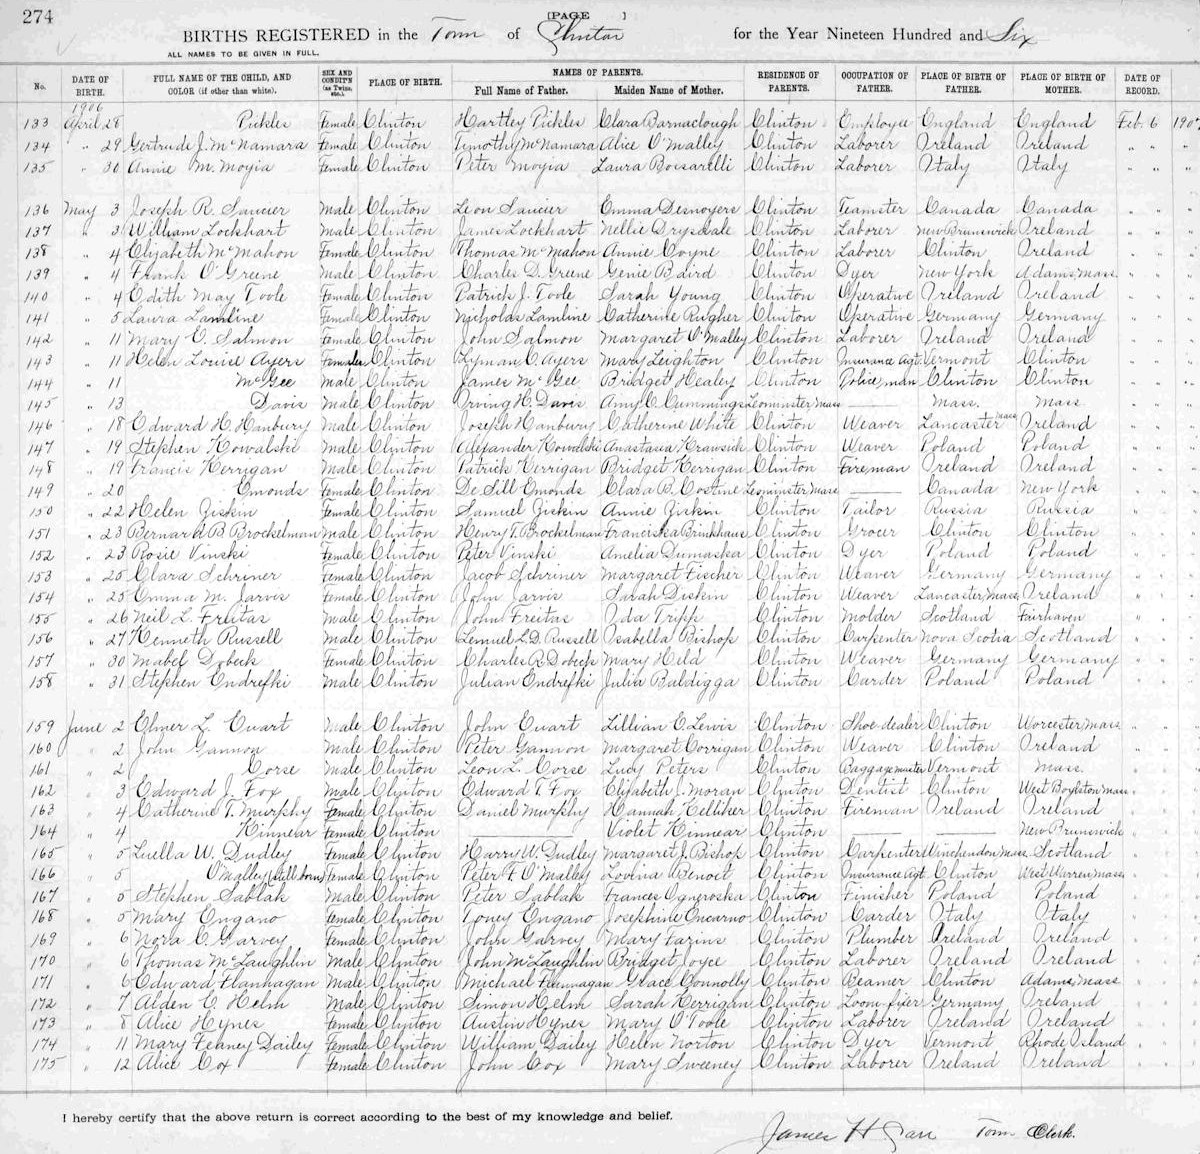 274
[PAGE ]
BIRTHS REGISTERED in the Town of Clinton for the Year Nineteen Hundred and Six
ALL NAMES TO BE GIVEN IN FULL.
No. DATE OF BIRTH. FULL NAME OF THE CHILD, AND COLOR (if other than white). SEX AND CONDIT'N (as Twins, etc.). PLACE OF BIRTH. NAMES OF PARENTS. Full Name of Father. Maiden Name of Mother. RESIDENCE OF PARENTS. OCCUPATION OF FATHER. PLACE OF BIRTH OF FATHER. PLACE OF BIRTH OF MOTHER. DATE OF RECORD.
1906
133 April 28 Pickles Female Clinton Hartley Pickles Clara Barnaclough Clinton Employee England England Feb. 6 190
134 " 29 Gertrude J. McNamara Female Clinton Timothy McNamara Alice O'Malley Clinton Laborer Ireland Ireland " " "
135 " 30 Annie M. Moyia Female Clinton Peter Moyia Laura Bocsarelli Clinton Laborer Italy Italy " " "
136 May 3 Joseph R. Saucier Male Clinton Leon Saucier Emma Desnoyers Clinton Teamster Canada Canada " " "
137 " 3 William Lockhart Male Clinton James Lockhart Nellie Drysdale Clinton Laborer New Brunswick Ireland " " "
138 " 4 Elizabeth McMahon Female Clinton Thomas McMahon Annie Coyne Clinton Laborer Clinton Ireland " " "
139 " 4 Frank O'Greene Male Clinton Charles D. Greene Genie Baird Clinton Dyer New York Adams, Mass. " " "
140 " 4 Edith May Toole Female Clinton Patrick J. Toole Sarah Young Clinton Operative Ireland Ireland " " "
141 " 5 Laura Lamline Female Clinton Nicholas Lamline Catherine Rugher Clinton Operative Germany Germany " " "
142 " 11 Mary C. Salmon Female Clinton John Salmon Margaret O'Malley Clinton Laborer Ireland Ireland " " "
143 " 11 Helen Louise Ayers Female Clinton Lyman C. Ayers Mary Leighton Clinton Insurance Agt. Vermont Clinton " " "
144 " 11 McGee Male Clinton James McGee Bridget Healey Clinton Policeman Clinton Clinton " " "
145 " 13 Davis Male Clinton Irving H. Davis Amy C. Cummings Leominster Mass — Mass. Mass " " "
146 " 18 Edward H. Hanbury Male Clinton Joseph Hanbury Catherine White Clinton Weaver Lancaster Mass Ireland " " "
147 " 19 Stephen Kowalski Male Clinton Alexander Kowalski Anastasia Krawsiik Clinton Weaver Poland Poland " " "
148 " 19 Francis Kerrigan Male Clinton Patrick Kerrigan Bridget Kerrigan Clinton Fireman Ireland Ireland " " "
149 " 20 Emonds Female Clinton De Sill Emonds Clara B. Costine Leominster Mass — Canada New York " " "
150 " 22 Helen Ziskin Female Clinton Samuel Ziskin Annie Ziskin Clinton Tailor Russia Russia " " "
151 " 23 Bernard B. Brockelman Male Clinton Henry T. Brockelman Franciska Brinkhaus Clinton Grocer Clinton Clinton " " "
152 " 23 Rosie Vinski Female Clinton Peter Vinski Amelia Dumaska Clinton Dyer Poland Poland " " "
153 " 25 Clara Schriner Female Clinton Jacob Schriner Margaret Fischer Clinton Weaver Germany Germany " " "
154 " 25 Emma M. Jarvis Female Clinton John Jarvis Sarah Diskin Clinton Weaver Lancaster, Mass. Ireland " " "
155 " 26 Neil L. Freitas Male Clinton John Freitas Ida Tripp Clinton Molder Scotland Fairhaven " " "
156 " 27 Kenneth Russell Male Clinton Lemuel L.D. Russell Isabella Bishop Clinton Carpenter Nova Scotia Scotland " " "
157 " 30 Mabel Dobeck Female Clinton Charles R. Dobeck Mary Held Clinton Weaver Germany Germany " " "
158 " 31 Stephen Endrefki Male Clinton Julian Endrefki Julia Baldigga Clinton Carder Poland Poland " " "
159 June 2 Elmer L. Cuart Male Clinton John Cuart Lillian E. Lewis Clinton Shoe-dealer Clinton Worcester, Mass " " "
160 " 2 John Gannon Male Clinton Peter Gannon Margaret Corrigan Clinton Weaver Clinton Ireland " " "
161 " 2 Corse Male Clinton Leon L. Corse Lucy Peters Clinton Baggage master Vermont Mass. " " "
162 " 3 Edward J. Fox Male Clinton Edward T. Fox Elizabeth J. Moran Clinton Dentist Clinton West Boylston Mass " " "
163 " 4 Catherine T. Murphy Female Clinton Daniel Murphy Hannah Kelliher Clinton Fireman Ireland Ireland " " "
164 " 4 Kinnear Female Clinton — Violet Kinnear Clinton — — New Brunswick " " "
165 " 5 Luella W. Dudley Female Clinton Harry W. Dudley Margaret J. Bishop Clinton Carpenter Winchendon Mass Scotland " " "
166 " 5 O'Malley (still born) Female Clinton Peter F. O'Malley Lovina Benoit Clinton Insurance Agt. Clinton West Warren, Mass " " "
167 " 5 Stephen Sablak Male Clinton Peter Sablak Frances Ogneroska Clinton Finisher Poland Poland " " "
168 " 5 Mary Engano Female Clinton Toney Engano Josephine Encarno Clinton Carder Italy Italy " " "
169 " 6 Nora C. Garvey Female Clinton John Garvey Mary Farins Clinton Plumber Ireland Ireland " " "
170 " 6 Thomas McLaughlin Male Clinton John McLaughlin Bridget Joyce Clinton Laborer Ireland Ireland " " "
171 " 6 Edward Flanhagan Male Clinton Michael Flannagan Grace Connolly Clinton Beamer Clinton Adams, Mass " " "
172 " 7 Alden C. Helm Male Clinton Simon Helm Sarah Kerrigan Clinton Loom-fixer Germany Ireland " " "
173 " 8 Alice Hynes Female Clinton Austin Hynes Mary O'Toole Clinton Laborer Ireland Ireland " " "
174 " 11 Mary Feaney Dailey Female Clinton William Dailey Helen Norton Clinton Dyer Vermont Rhode Island " " "
175 " 12 Alice Cox Female Clinton John Cox Mary Sweeney Clinton Laborer Ireland Ireland " " "
I hereby certify that the above return is correct according to the best of my knowledge and belief.
James H Carr Town Clerk.